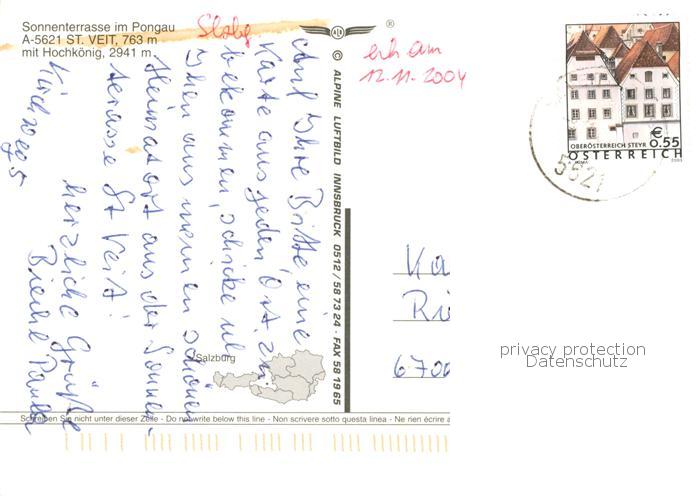 Sonnenterrasse im Pongau
A-5621 ST. VEIT, 763 m
mit Hochkönig, 2941 m
®
© ALPINE LUFTBILD INNSBRUCK 0512/58 73 24 · FAX 58 19 65
erh am
12.11.2004
OBERÖSTERREICH STEYR
€ 0.55
ÖSTERREICH
5621
Auf Ihre Bitte eine
Karte aus jeden Ort zu
bekommen, schicke ich
Ihnen aus meinen schönen
Heimatort aus der Sonnen-
terasse St Veit!
herzliche Grüße
Kirchweg 5
Salzburg
Ka
Ri
6700
privacy protection
Datenschutz
Schreiben Sie nicht unter dieser Zeile - Do not write below this line - Non scrivere sotto questa linea - Ne rien écrire a